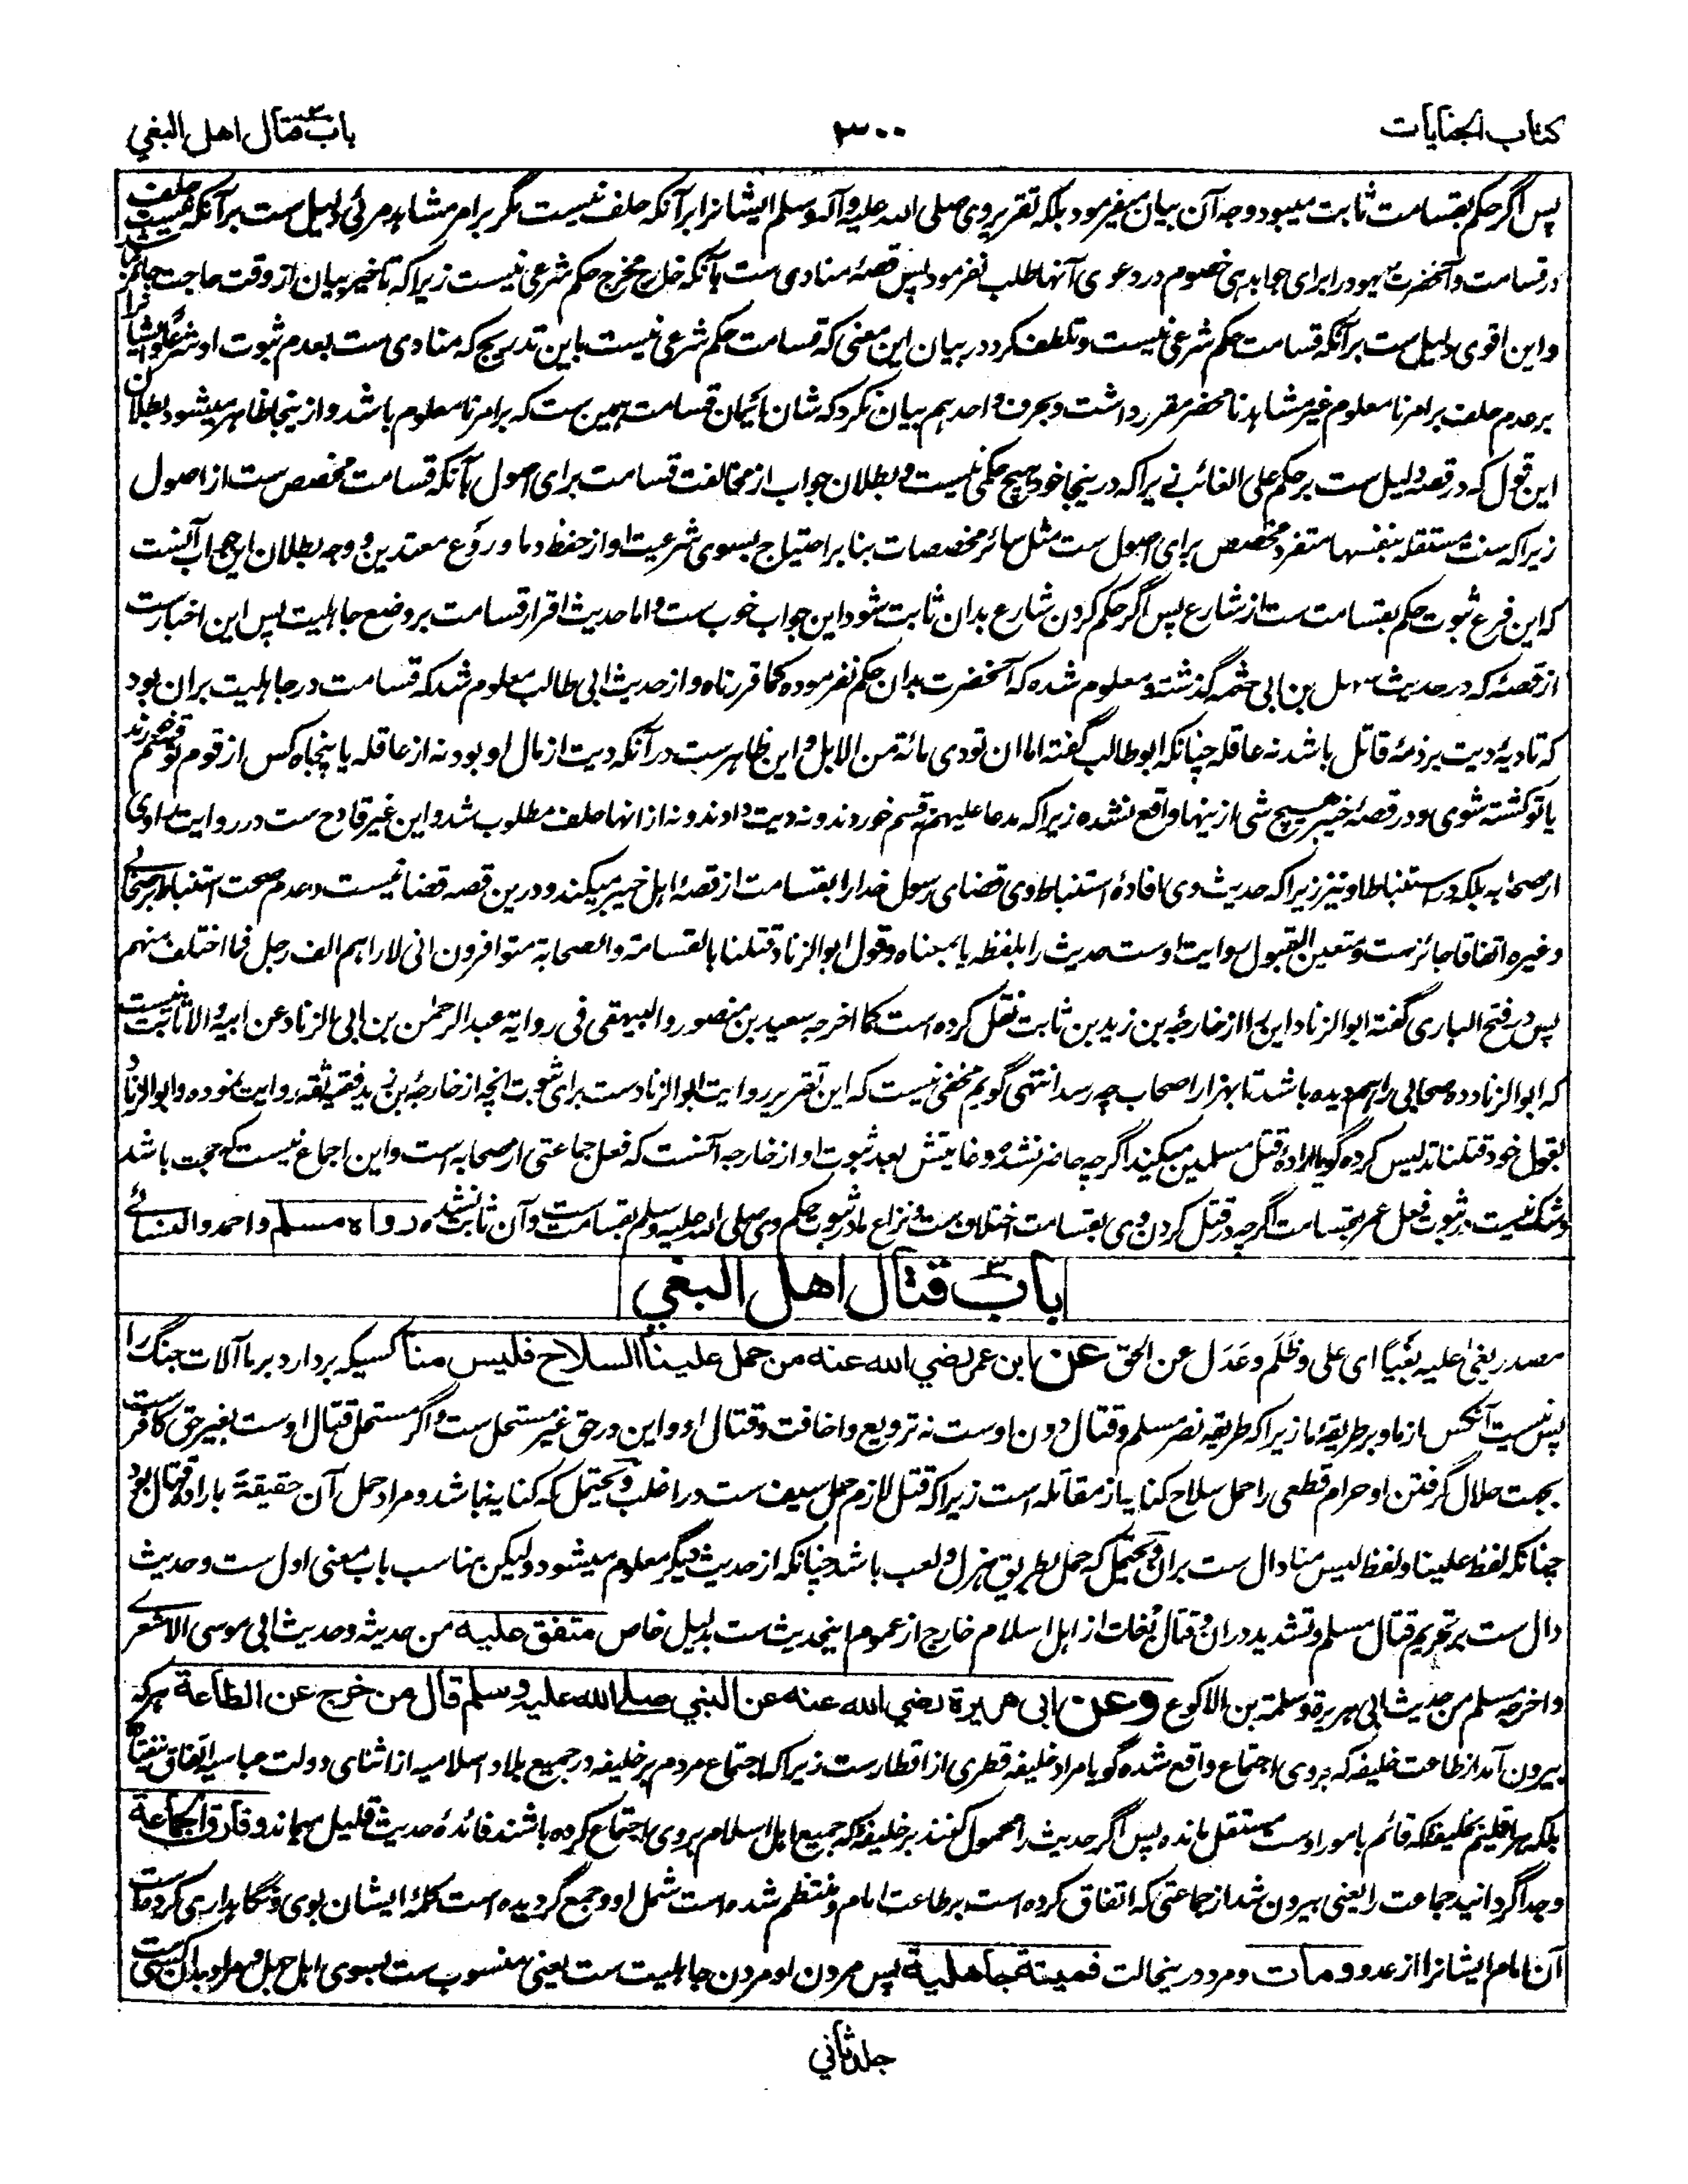 کتاب الجنایات
۳۰۰
باب قتال اهل البغي
پس اگر حکم بقسامت ثابت میبود وجه آن بیان میفرمود بلکه تقریر وی صلی الله علیه وآله وسلم ایشانرا برآنکه حلف نیست مگر بر امر مشاهد مرئی دلیل ست برآنکه نیست حلف
در قسامت وآنحضرت یهود را برای جوابدهی خصوم در دعوی آنها طلب نفرمود پس قصه منادی ست بآنکه خارج مخرج حکم شرعی نیست زیراکه تاخیر بیان از وقت حاجت جائز نباشد
واین اقوی دلیل ست برآنکه قسامت حکم شرعی نیست وتلطف کرد در بیان این معنی که قسامت حکم شرعی نیست باین تدریج که منادی ست بعدم ثبوت او شرعا وایشانرا
بر عدم حلف بر امر نامعلوم غیر مشاهد نامحضر مقرر داشت وبحرف واحد هم بیان نکرد که شان ایمان قسامت همین ست که بر امر نامعلوم باشد وازینجا ظاهر میشود بطلان
این قول که در قصه دلیل ست بر حکم علی الغائب زیراکه درینجا خود هیچ حکمی نیست وبطلان جواب از مخالفت قسامت برای اصول بآنکه قسامت مخصص ست از اصول
زیراکه سنت مستقله بنفسها متفرد مخصص برای اصول ست مثل سائر مخصصات بنا بر احتیاج بسوی شرعیت او از حفظ دما وروع معتدین ووجه بطلان این جواب آنست
که این فرع ثبوت حکم بقسامت ست از شارع پس اگر حکم کردن شارع بدان ثابت شود این جواب خوب ست واما حدیث اقرار قسامت بر وضع جاهلیت پس این اخبارست
از قصه که در حدیث سهل بن ابی حثمه گذشت ومعلوم شده که آنحضرت بدان حکم نفرموده کما قررناه واز حدیث ابی طالب معلوم شد که قسامت در جاهلیت بران بود
که تادیه دیت بر ذمه قاتل باشد نه عاقله چنانکه ابوطالب گفته اما ان تودی مائة من الابل واین ظاهرست درآنکه دیت از مال او بود نه از عاقله یا پنجاه کس از قوم تو قسم خورند
یا تو کشته شوی ودر قصه خیبر هیچ شی ازینها واقع نشده زیراکه مدعا علیهم نه قسم خوردند ونه دیت دادند ونه ازانها حلف مطلوب شد واین غیر قادح ست در روایت راوی
از صحابه بلکه در استنباط او نیز زیراکه حدیث وی افاده استنباط وی قضای رسول خدا را بقسامت از قصه اهل خیبر میکند ودرین قصه قضا نیست وعدم صحت استنباط بر صحابی
وغیره اتفاقا جائزست ومتعین القبول روایت اوست حدیث را بلفظه یا بمعناه وقول ابوالزناد قتلنا بالقسامة والصحابة متوافرون انی لاراهم الف رجل فما اختلف منهم
پس در فتح الباری گفته ابوالزناد این را از خارجه بن زید بن ثابت نقل کرده است کما اخرجه سعید بن منصور والبیهقی فی روایة عبد الرحمن بن ابی الزناد عن ابیه والا ثابت نیست
که ابوالزناد ده صحابی را هم دیده باشد تا بهزار اصحاب چه رسد انتهی گویم مخفی نیست که این تقریر روایت ابوالزنادست برای ثبوت آنچه از خارجه بن زید فقیه ثقه روایت نموده وابوالزناد
بقول خود قتلنا تدلیس کرده گویا اراده قتل مسلمین میکند اگرچه حاضر نشده وغایتش بعد ثبوت او از خارجه آنست که فعل جماعتی از صحابه است واین اجماع نیست که حجت باشد
وشک نیست در ثبوت فعل عمر بقسامت اگرچه در قتل کردن وی بقسامت اختلاف ست ونزاع ما در ثبوت حکم وی صلی الله علیه وسلم بقسامت ست وآن ثابت نشده رواه مسلم واحمد والنسائي
باب قتال اهل البغي
مصدر بغی علیه بغیا ای علی وظلم وعدل عن الحق عن ابن عمر رضي الله عنه من حمل علینا السلاح فلیس منا کسیکه بردارد بر ما آلات جنگ را
پس نیست آنکس از ما وبر طریقه ما زیراکه طریقه نصر مسلم وقتال دون اوست نه ترویع واخافت وقتال او واین در حق غیر مستحل ست واگر مستحل قتال اوست بغیر حق کافرست
بجهت حلال گرفتن او حرام قطعی را حمل سلاح کنایه از مقاتله است زیراکه قتل لازم حمل سیف ست در اغلب ویحتمل که کنایه نباشد ومراد حمل آن حقیقة باراده قتال بود
چنانکه لفظ علینا ولفظ لیس منا دال ست بران ویحتمل که حمل بطریق هزل ولعب باشد چنانکه از حدیث دیگر معلوم میشود ولیکن مناسب باب معنی اول ست وحدیث
دال ست بر تحریم قتال مسلم وتشدید دران وقتال بغات از اهل اسلام خارج از عموم اینحدیث ست بدلیل خاص متفق علیه من حدیثه وحدیث ابی موسی الاشعري
واخرجه مسلم من حدیث ابی هریرة وسلمة بن الاکوع وعن ابی هریرة رضي الله عنه عن النبي صلی الله علیه وسلم قال من خرج عن الطاعة هرکه
بیرون آمد از طاعت خلیفه که بروی اجتماع واقع شده گویا مراد خلیفه قطری از اقطارست زیراکه اجتماع مردم بر خلیفه در جمیع بلاد اسلامیه از اثنای دولت عباسیه اتفاق نیفتاد
بلکه هر اقلیم بخلیفه که قائم بامور اوست مستقل مانده پس اگر حدیث را محمول کنند بر خلیفه که جمیع اهل اسلام بروی اجتماع کرده باشند فائده حدیث قلیل میماند وفارق الجماعة
وجدا گردانید جماعت را یعنی بیرون شد از جماعتی که اتفاق کرده است بر طاعت امام ومنتظم شده است شمل او وجمع گردیده است کلمه ایشان بوی ونگاهداری کرده است
آن امام ایشانرا از عدو ومات ومرد درینحالت فمیتة جاهلیة پس مردن او مردن جاهلیت ست یعنی منسوب ست بسوی اهل جهل ومراد بدان کسی ست
جلد ثاني